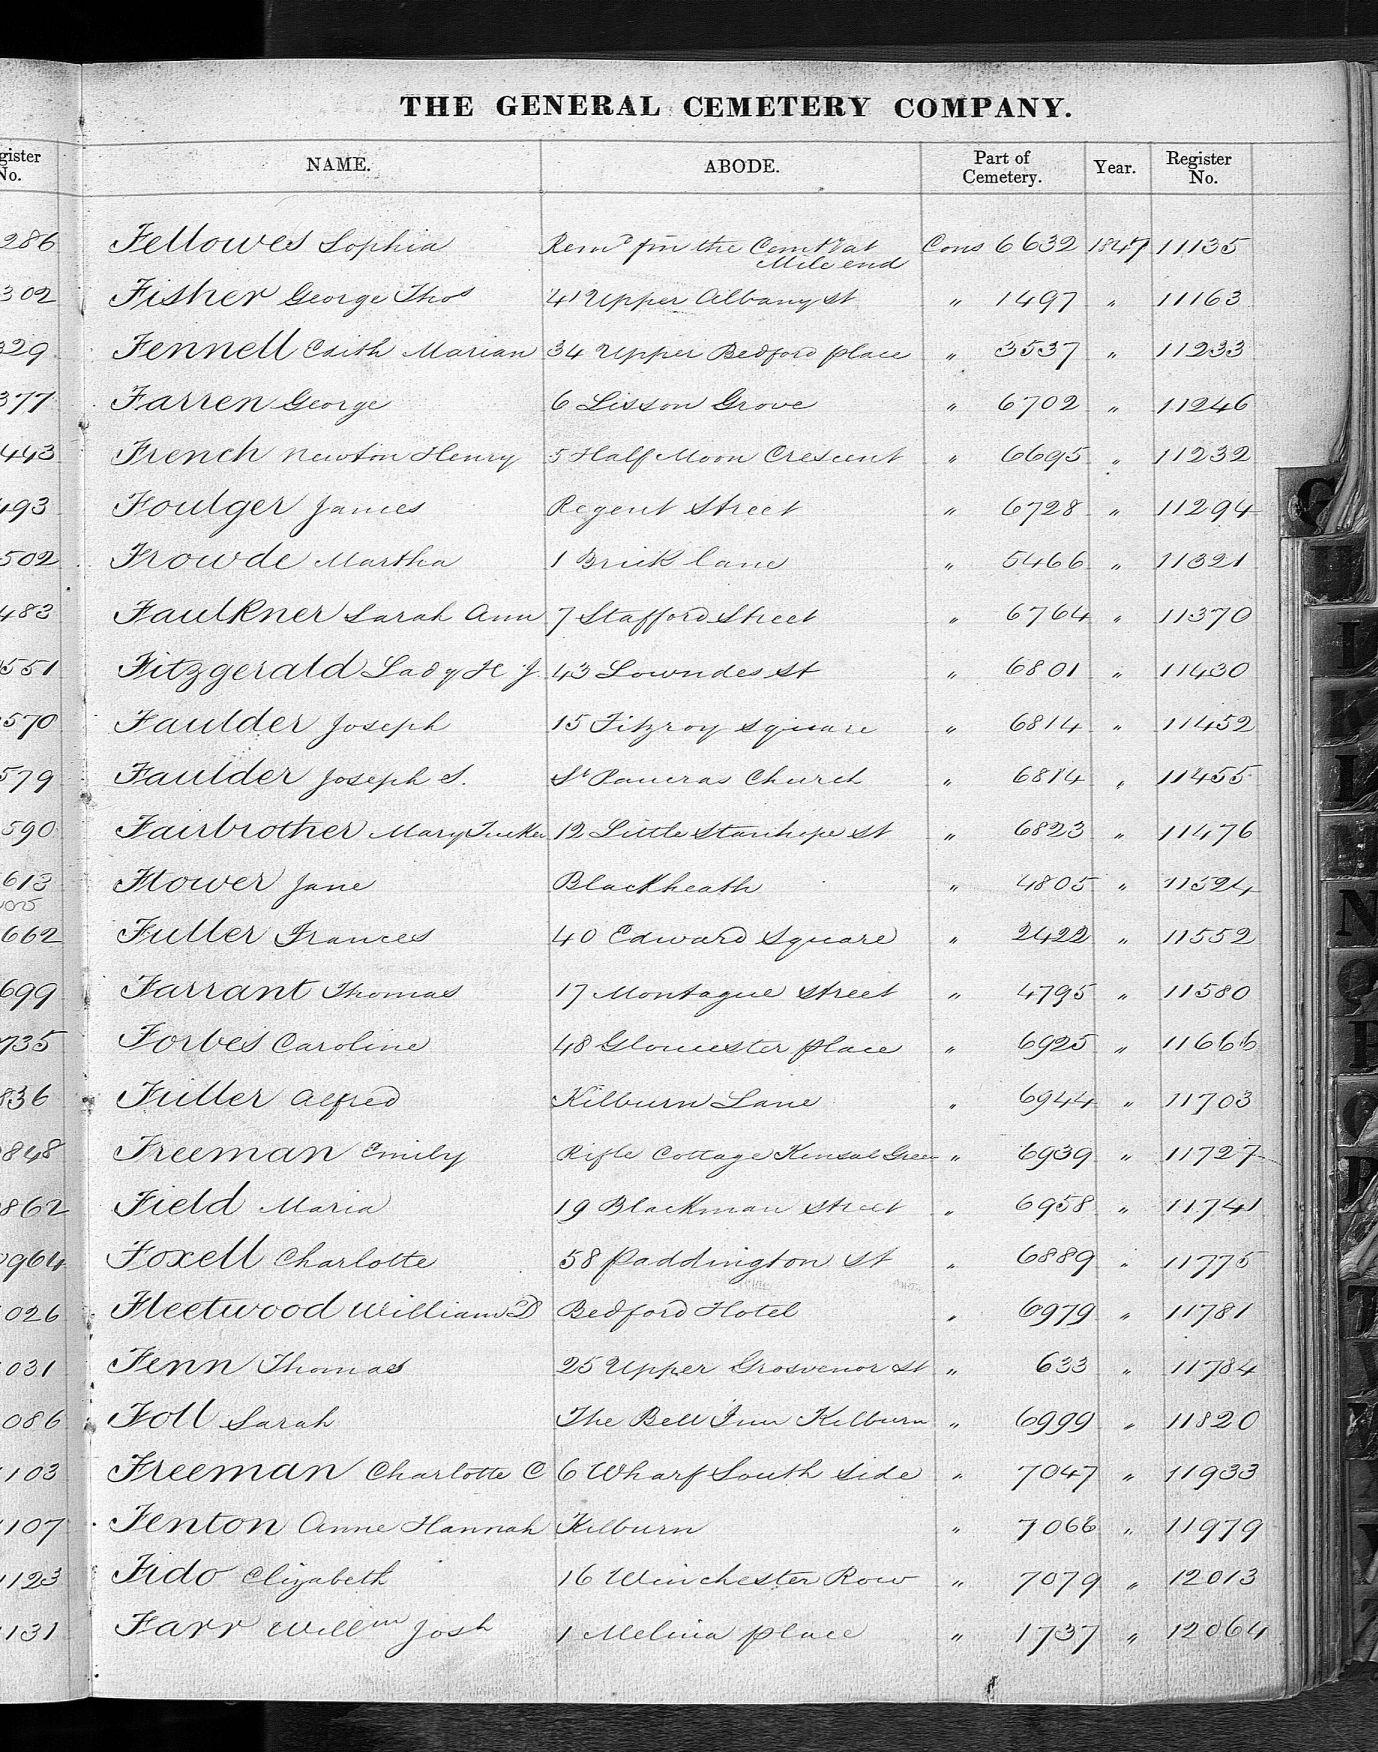 THE GENERAL CEMETERY COMPANY.
gister No. NAME. ABODE. Part of Cemetery. Year. Register No.
286 Fellowes Sophia Remd frm the Cemty at Mile end Cons 6632 1847 11135
302 Fisher George Thos 41 Upper Albany st " 1497 " 11163
329 Fennell Edith Marian 34 Upper Bedford place " 3537 " 11233
377 Farren George 6 Lisson Grove " 6702 " 11246
443 French Newton Henry 5 Half Moon Crescent " 6695 " 11232
493 Foulger James Regent Street " 6728 " 11294
502 Frowde Martha 1 Brick lane " 5466 " 11321
483 Faulkner Sarah Ann 7 Stafford Street " 6764 " 11370
551 Fitzgerald Lady H J. 43 Lowndes st " 6801 " 11430
570 Faulder Joseph 15 Fitzroy square " 6814 " 11452
579 Faulder Joseph S. St Pancras Church " 6814 " 11455
590 Fairbrother Mary Tucker 12 Little Stanhope st " 6823 " 11476
613 Flower Jane Blackheath " 4805 " 11524
662 Fuller Frances 40 Edward Square " 2422 " 11552
699 Farrant Thomas 17 Montague street " 4795 " 11580
735 Forbes Caroline 48 Gloucester place " 6925 " 11666
836 Fuller Alfred Kilburn Lane " 6944 " 11703
848 Freeman Emily Rifle Cottage Kensal Green " 6939 " 11727
862 Field Maria 19 Blackman street " 6958 " 11741
0964 Foxell Charlotte 58 Paddington st " 6889 " 11775
026 Fleetwood William D Bedford Hotel " 6979 " 11781
031 Fenn Thomas 25 Upper Grosvenor st " 633 " 11784
086 Foll Sarah The Bell Inn Kilburn " 6999 " 11820
103 Freeman Charlotte C 6 Wharf South side " 7047 " 11933
107 Fenton Anne Hannah Kilburn " 7066 " 11979
1123 Fido Elizabeth 16 Winchester Row " 7079 " 12013
1131 Farr Willm Josh 1 Melina place " 1737 " 12064
G
H
I
K
L
M
N
O
P
Q
R
T
V
W